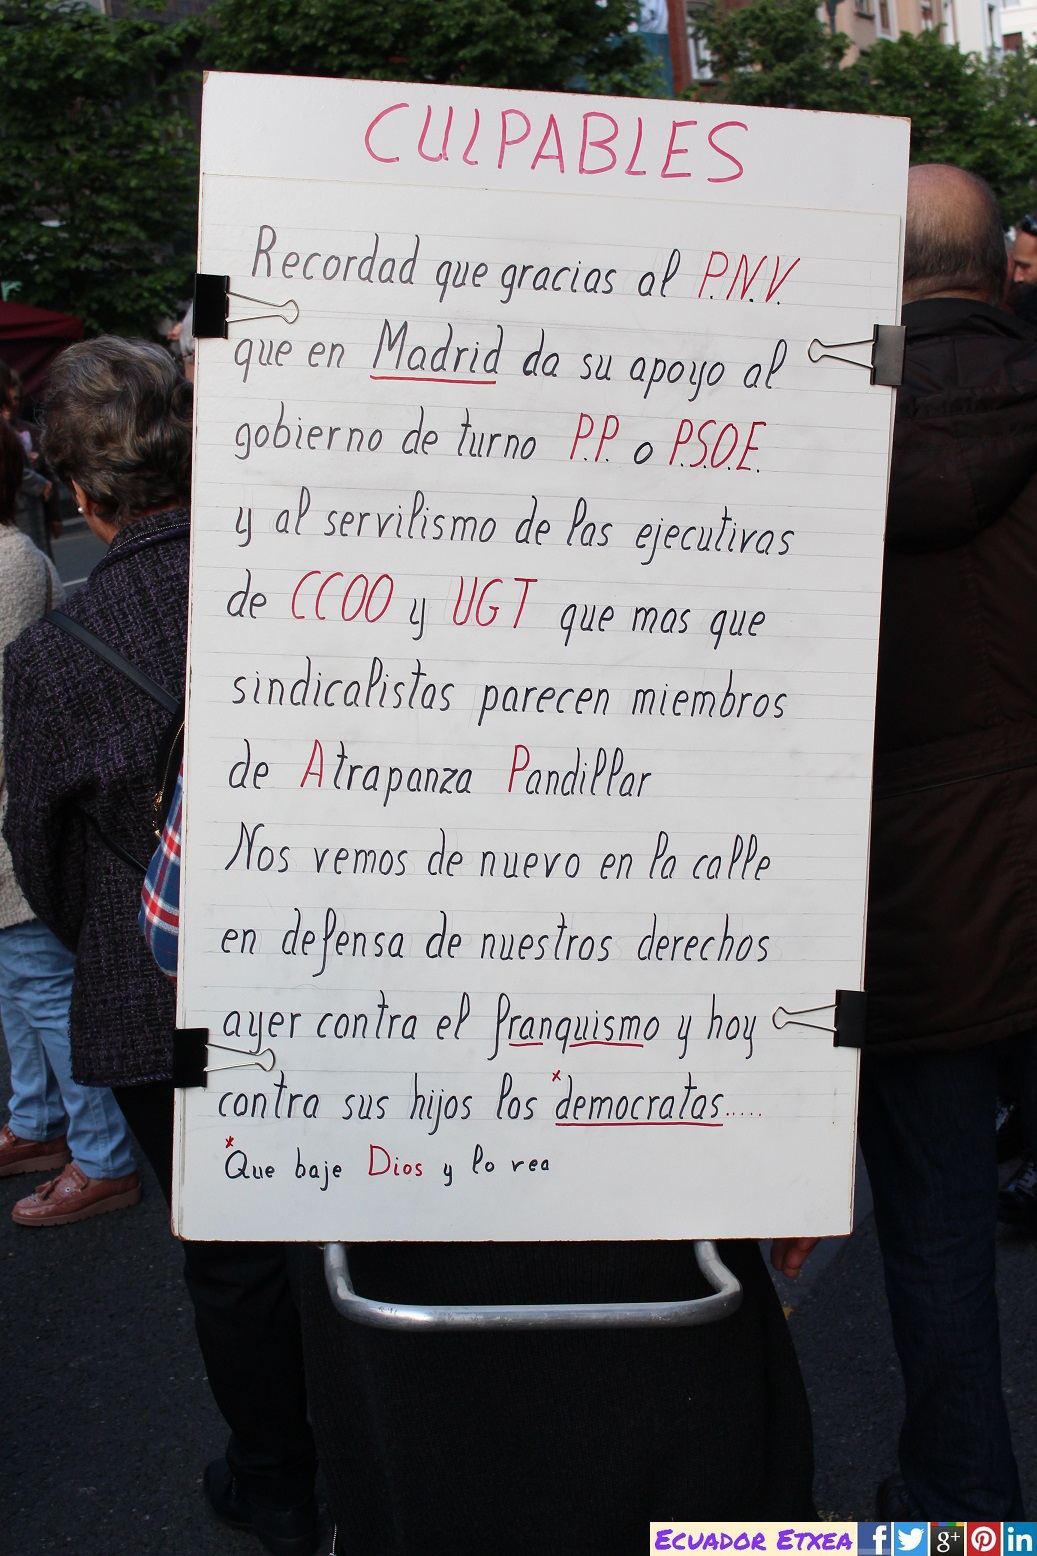 CULPABLES
Recordad que gracias al P.N.V.
que en Madrid da su apoyo al
gobierno de turno P.P. o P.S.O.E.
y al servilismo de las ejecutivas
de CCOO y UGT que mas que
sindicalistas parecen miembros
de Atrapanza Pandillar
Nos vemos de nuevo en la calle
en defensa de nuestros derechos
ayer contra el franquismo y hoy
contra sus hijos los *demócratas.....
*Que baje Dios y lo vea
ECUADOR ETXEA f g+ in